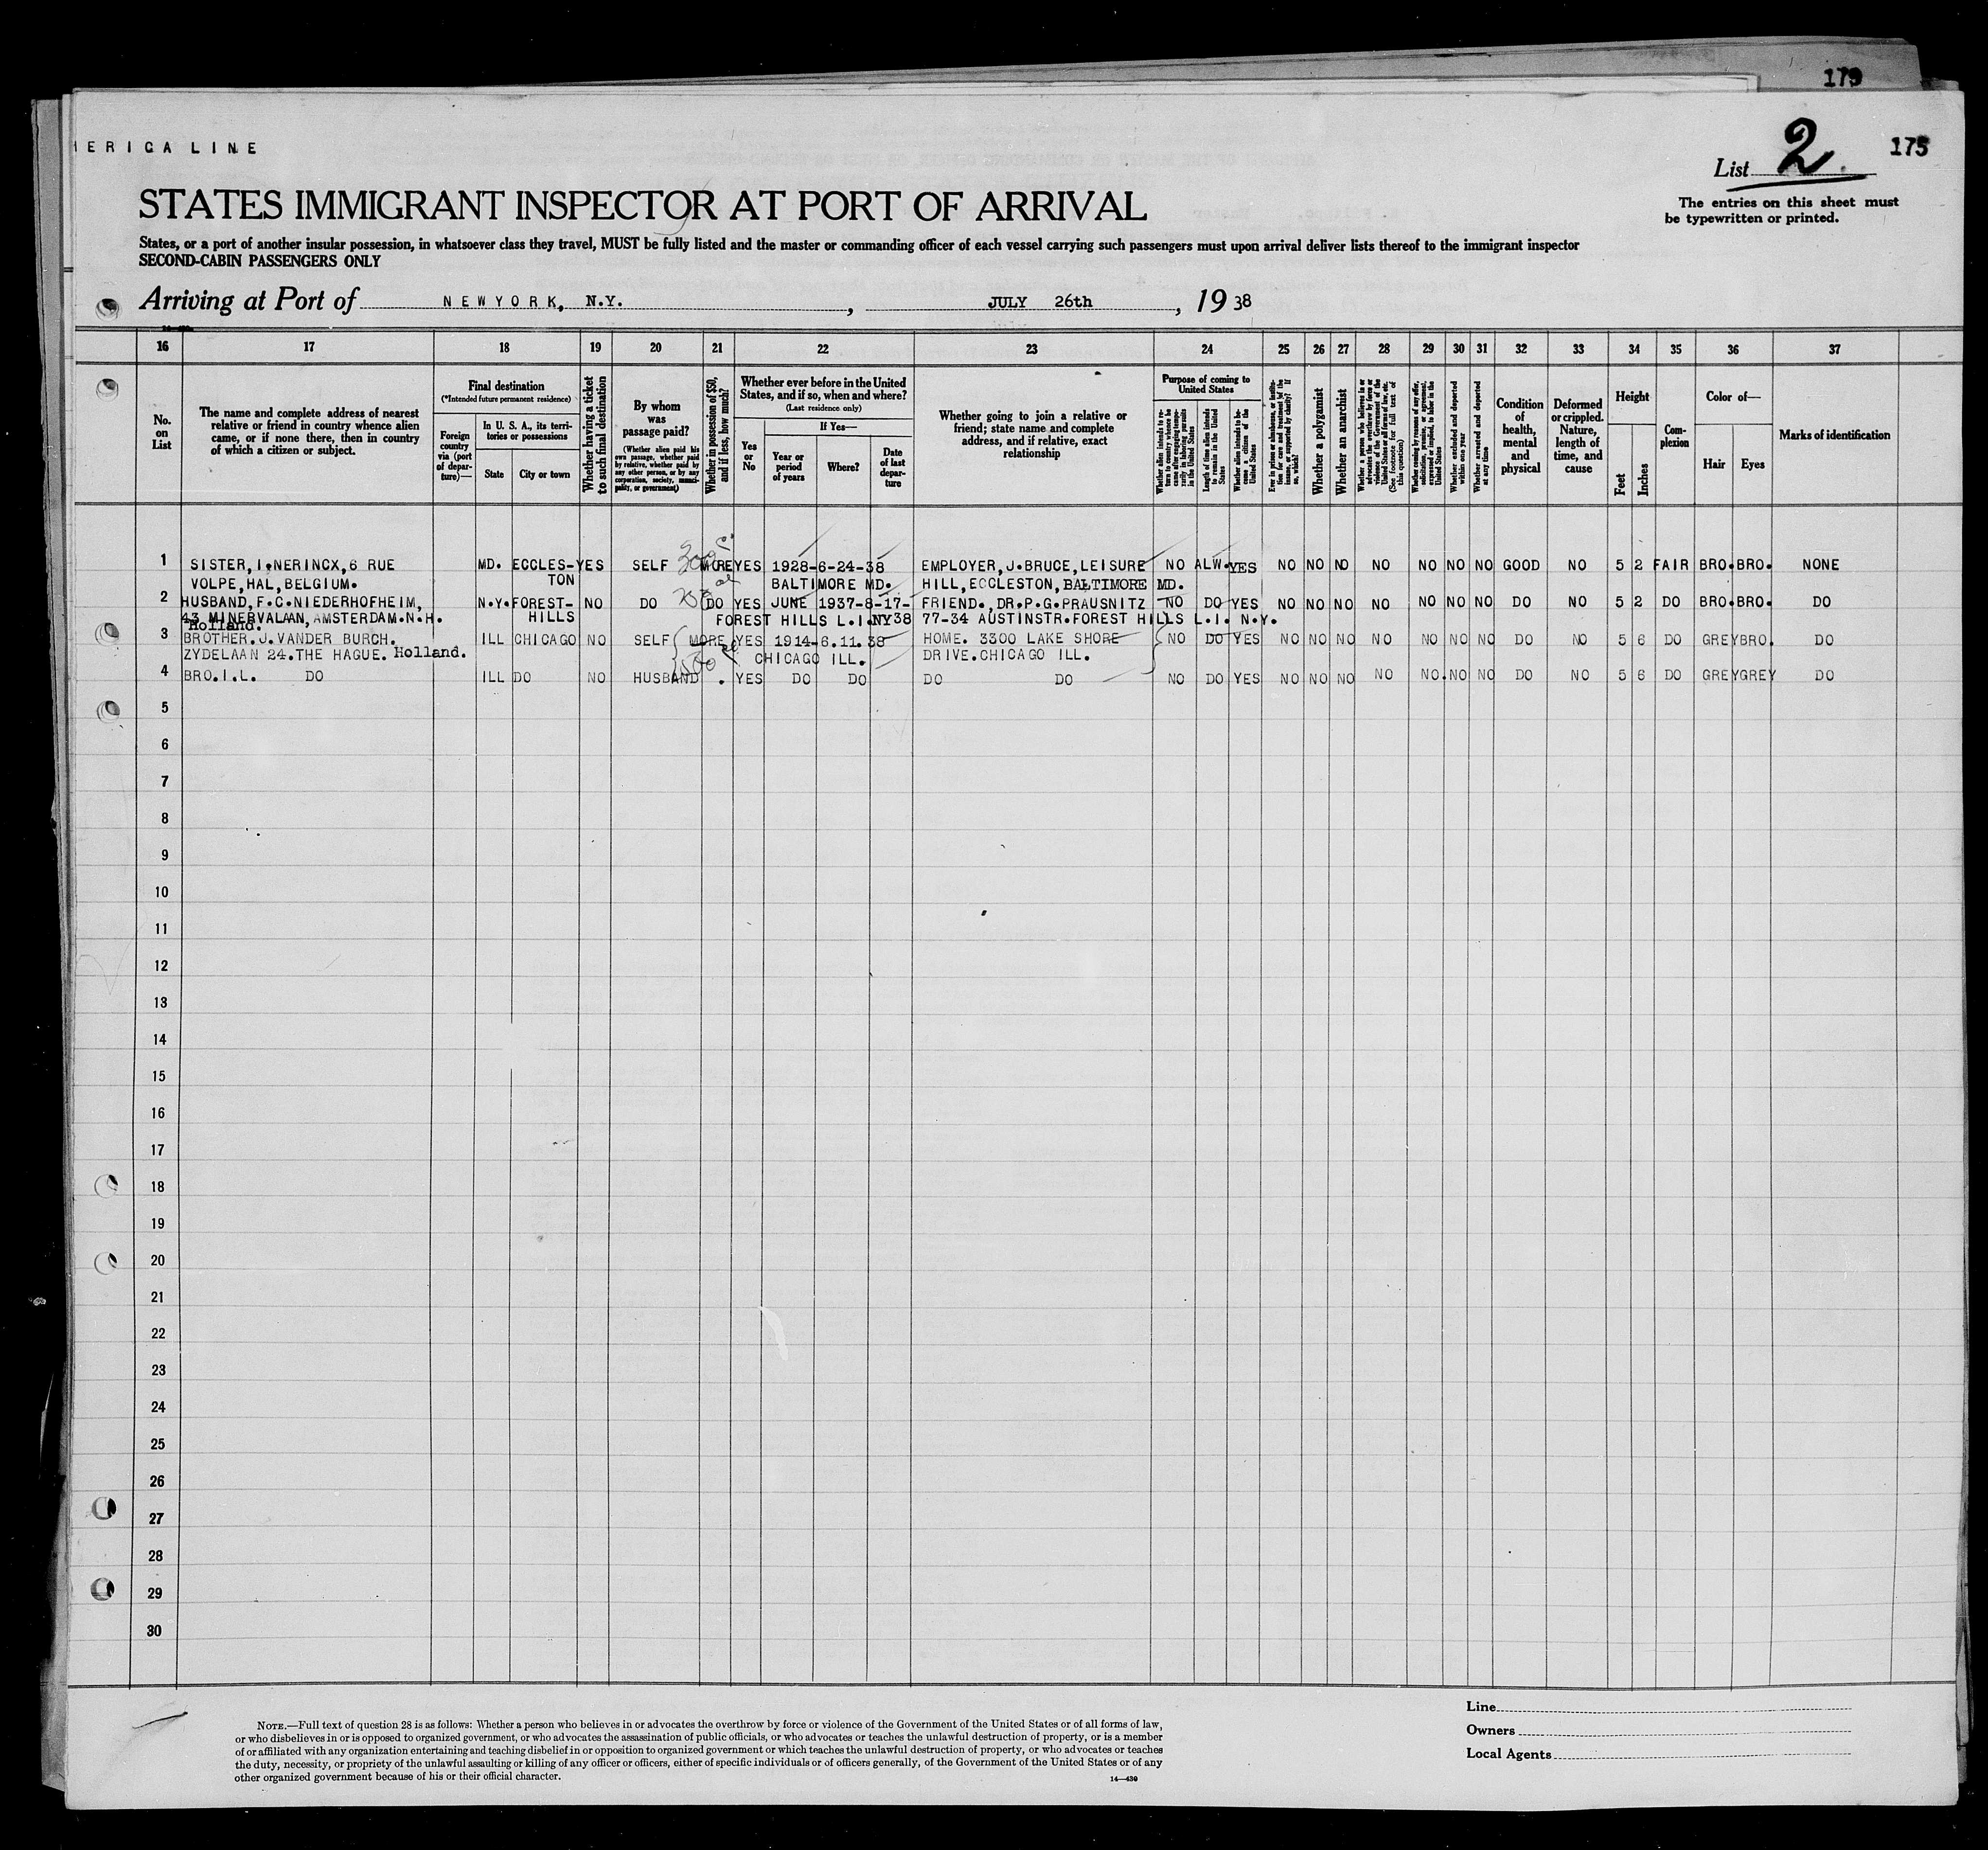 179
175
ERICA LINE
List 2.
The entries on this sheet must
be typewritten or printed.
STATES IMMIGRANT INSPECTOR AT PORT OF ARRIVAL
States, or a port of another insular possession, in whatsoever class they travel, MUST be fully listed and the master or commanding officer of each vessel carrying such passengers must upon arrival deliver lists thereof to the immigrant inspector
SECOND-CABIN PASSENGERS ONLY
Arriving at Port of NEWYORK, N.Y. , JULY 26th , 1938
16 17 18 19 20 21 22 23 24 25 26 27 28 29 30 31 32 33 34 35 36 37
No. on List
The name and complete address of nearest relative or friend in country whence alien came, or if none there, then in country of which a citizen or subject.
Final destination
(*Intended future permanent residence)
Foreign country via (port of departure)—
In U. S. A., its territories or possessions
State City or town
Whether having a ticket to such final destination
By whom was passage paid?
(Whether alien paid his own passage, whether paid by relative, whether paid by any other person, or by any corporation, society, municipality, or government)
Whether in possession of $50, and if less, how much?
Whether ever before in the United States, and if so, when and where?
(Last residence only)
Yes or No
If Yes—
Year or period of years Where? Date of last departure
Whether going to join a relative or friend; state name and complete address, and if relative, exact relationship
Purpose of coming to United States
Whether alien intends to return to country whence he came after engaging temporarily in laboring pursuits in the United States
Length of time alien intends to remain in the United States
Whether alien intends to become a citizen of the United States
Ever in prison or almshouse, or institution for care and treatment of the insane, or supported by charity? If so, which?
Whether a polygamist
Whether an anarchist
Whether a person who believes in or advocates the overthrow by force or violence of the Government of the United States or all forms of law, etc. (See footnote for full text of this question)
Whether coming by reason of any offer, solicitation, promise, or agreement, expressed or implied, to labor in the United States
Whether excluded and deported within one year
Whether arrested and deported at any time
Condition of health, mental and physical
Deformed or crippled. Nature, length of time, and cause
Height
Feet Inches
Complexion
Color of—
Hair Eyes
Marks of identification
1 SISTER,I.NERINCX,6 RUE MD. ECCLES- YES SELF 300 MORE YES 1928-6-24-38 EMPLOYER,J.BRUCE,LEISURE NO ALW. YES NO NO NO NO NO NO NO GOOD NO 5 2 FAIR BRO. BRO. NONE
VOLPE,HAL,BELGIUM. TON BALTIMORE MD. HILL,ECCLESTON,BALTIMORE MD.
2 HUSBAND,F.C.NIEDERHOFHEIM, N.Y. FOREST- NO DO DO YES JUNE 1937-8-17- FRIEND.,DR.P.G.PRAUSNITZ NO DO YES NO NO NO NO NO NO NO DO NO 5 2 DO BRO. BRO. DO
43 MINERVALAAN,AMSTERDAM.N.H. HILLS FOREST HILLS L.I.NY38 77-34 AUSTINSTR.FOREST HILLS L.I. N.Y.
Holland.
3 BROTHER.J.VANDER BURCH. ILL CHICAGO NO SELF MORE YES 1914-6.11.38 HOME. 3300 LAKE SHORE NO DO YES NO NO NO NO NO NO NO DO NO 5 6 DO GREY BRO. DO
ZYDELAAN 24.THE HAGUE. Holland. CHICAGO ILL. DRIVE.CHICAGO ILL.
4 BRO.I.L. DO ILL DO NO HUSBAND . YES DO DO DO DO NO DO YES NO NO NO NO NO. NO NO DO NO 5 6 DO GREY GREY DO
5
6
7
8
9
10
11
12
13
14
15
16
17
18
19
20
21
22
23
24
25
26
27
28
29
30
NOTE.—Full text of question 28 is as follows: Whether a person who believes in or advocates the overthrow by force or violence of the Government of the United States or of all forms of law,
or who disbelieves in or is opposed to organized government, or who advocates the assassination of public officials, or who advocates or teaches the unlawful destruction of property, or is a member
of or affiliated with any organization entertaining and teaching disbelief in or opposition to organized government or which teaches the unlawful destruction of property, or who advocates or teaches
the duty, necessity, or propriety of the unlawful assaulting or killing of any officer or officers, either of specific individuals or of officers generally, of the Government of the United States or of any
other organized government because of his or their official character.
14—430
Line
Owners
Local Agents